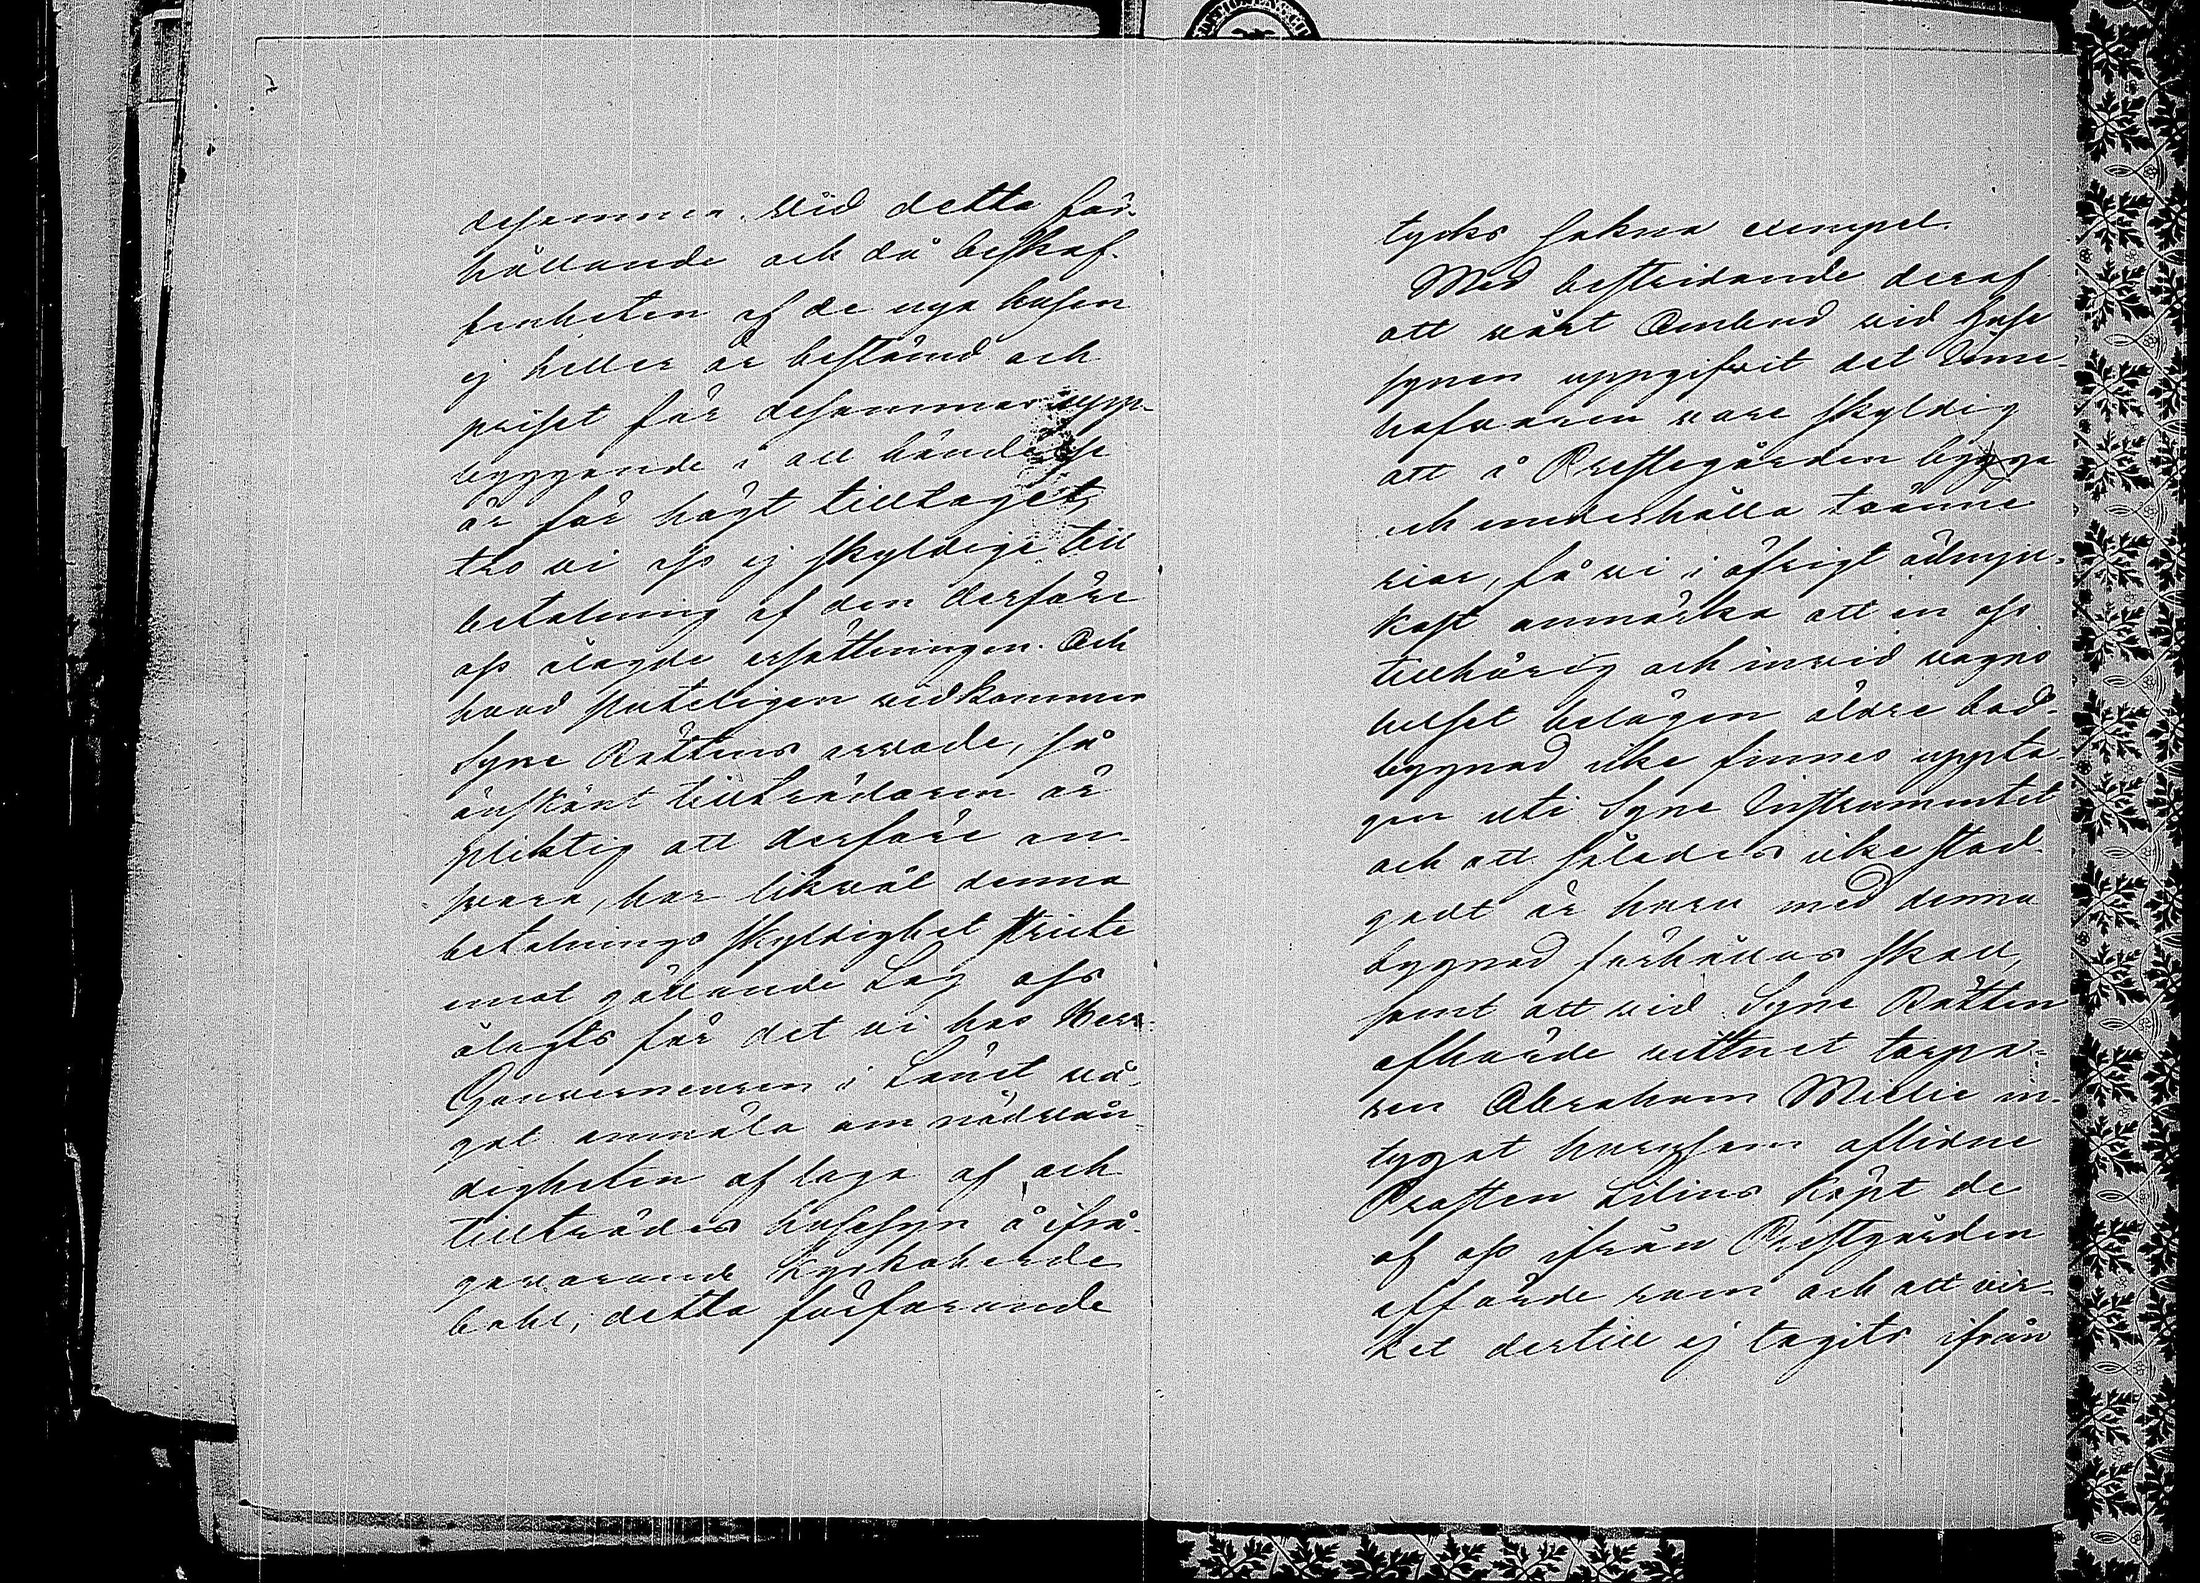 desamma. Vid detta för-
hållande och då beskaf-
fenheten af de nya husen
ej heller är bestämd och
priset för desammas upp-
byggande i all händelse
är för högt tilltaget,
tro vi oss ej skyldige till
betalning af den derföre
oss ålagde ersättningen. Och
hvad sluteligen vidkommer
Syne Rättens arvode, så
änskönt tillträdaren är
pliktig att derföre an-
svara, har likväl denna
betalnings skyldighet stricte
emot gällande Lag oss
ålagts för det vi hos Herr
Gouverneuren i Länet vå-
gat anmäla om nödvän-
digheten af laga af och
tillträdes husesyn å ifrå-
gavarande Kyrkoherde
bohl, detta förfarande
tycks sakna exempel.
Med bestridande deraf
att vårt Ombud vid huse
synen uppgifvit det Inne-
hafvaren vore skyldig
att å Prestegården bygga
och underhålla tvänne
rior, få vi i öfrigt ödmju-
kast anmärka att en oss
tillhörig och invid vagns
huset belägen äldre bod-
byggnad icke finnes uppta-
gen uti Syne Instrumentet
och att således icke stad-
gadt är huru med denna
byggnad förhållas skall,
samt att vid Syne Rätten
afhörde vittnet torpa-
ren Abraham Mielie in-
tygat hurusom aflidne
Prosten Lilius köpt de
af oss ifrån Prestgården
afförde rum och att vir-
ket dertill ej tagits ifrån